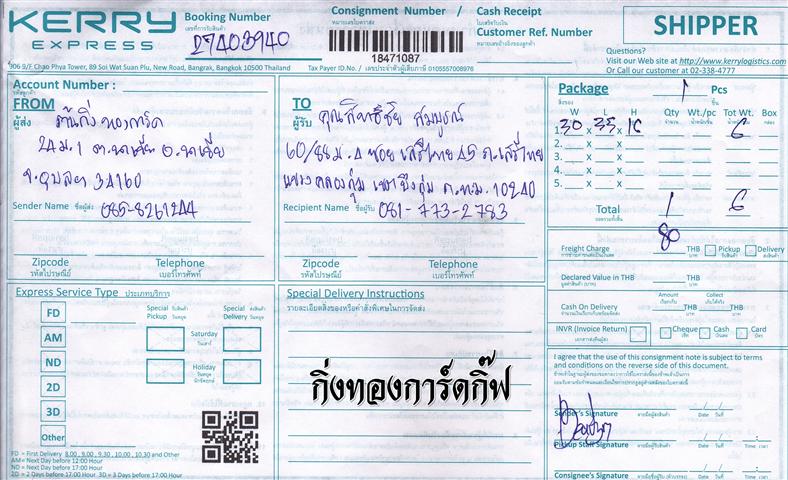 KERRY
EXPRESS
Booking Number
เลขที่การรับสินค้า
Consignment Number /
หมายเลขใบตราส่ง
Cash Receipt
ใบเสร็จรับเงิน
Customer Ref. Number
หมายเลขอ้างอิงของลูกค้า
18471087
SHIPPER
Questions?
Visit our Web site at http://www.kerrylogistics.com
Or Call our customer at 02-338-4777
906 9/F Chao Phya Tower, 89 Soi Wat Suan Plu, New Road, Bangrak, Bangkok 10500 Thailand
Tax Payer ID.No. / เลขประจำตัวผู้เสียภาษี 0105557008976
Account Number :
รหัสลูกค้า
FROM
ผู้ส่ง
ต้นกิ่ง ทองการ์ด
24 ม.1
จ.อุบลฯ 34160
Sender Name ชื่อผู้ส่ง 085-8261244
Zipcode
รหัสไปรษณีย์
Telephone
เบอร์โทรศัพท์
TO
ผู้รับ
คุณสิทธิชัย สมบูรณ์
60/88 ม.4 ซอย เสรีไทย 45 ถ.เสรีไทย
แขวง คลองกุ่ม เขต บึงกุ่ม ก.ท.ม. 10240
Recipient Name ชื่อผู้รับ 081-773-2783
Zipcode
รหัสไปรษณีย์
Telephone
เบอร์โทรศัพท์
Package 1 Pcs
สิ่งของ ชิ้น
W L H Qty Wt./pc Tot Wt. Box
1. 30 x 35 x 16 6
2. x x
3. x x
4. x x
5. x x
Total 1 6
80
Freight Charge THB Pickup Delivery
Declared Value in THB THB
Amount Collect
Cash On Delivery THB THB
INVR (Invoice Return) Cheque Cash Card
Express Service Type ประเภทบริการ
FD
AM
ND
2D
3D
Other
Special Pickup
Special Delivery
Saturday
วันเสาร์
Holiday
วันหยุด
นักขัตฤกษ์
FD = First Delivery 8.00 , 9.00 , 9.30 , 10.00 , 10.30 and Other
AM= Next Day before 12:00 Hour
ND = Next Day before 17:00 Hour
2D = 2 Days before 17:00 Hour 3D = 3 Days before 17:00 Hour
Special Delivery Instructions
รายละเอียดสิ่งของหรือคำสั่งพิเศษในการจัดส่ง
กิ่งทองการ์ดกิ๊ฟ
I agree that the use of this consignment note is subject to terms
and conditions on the reverse side of this document.
Sender's Signature ลายมือชื่อผู้ส่ง Date วันที่ Time เวลา
Pickup Staff Signature Date วันที่ Time เวลา
Consignee's Signature Date วันที่ Time เวลา